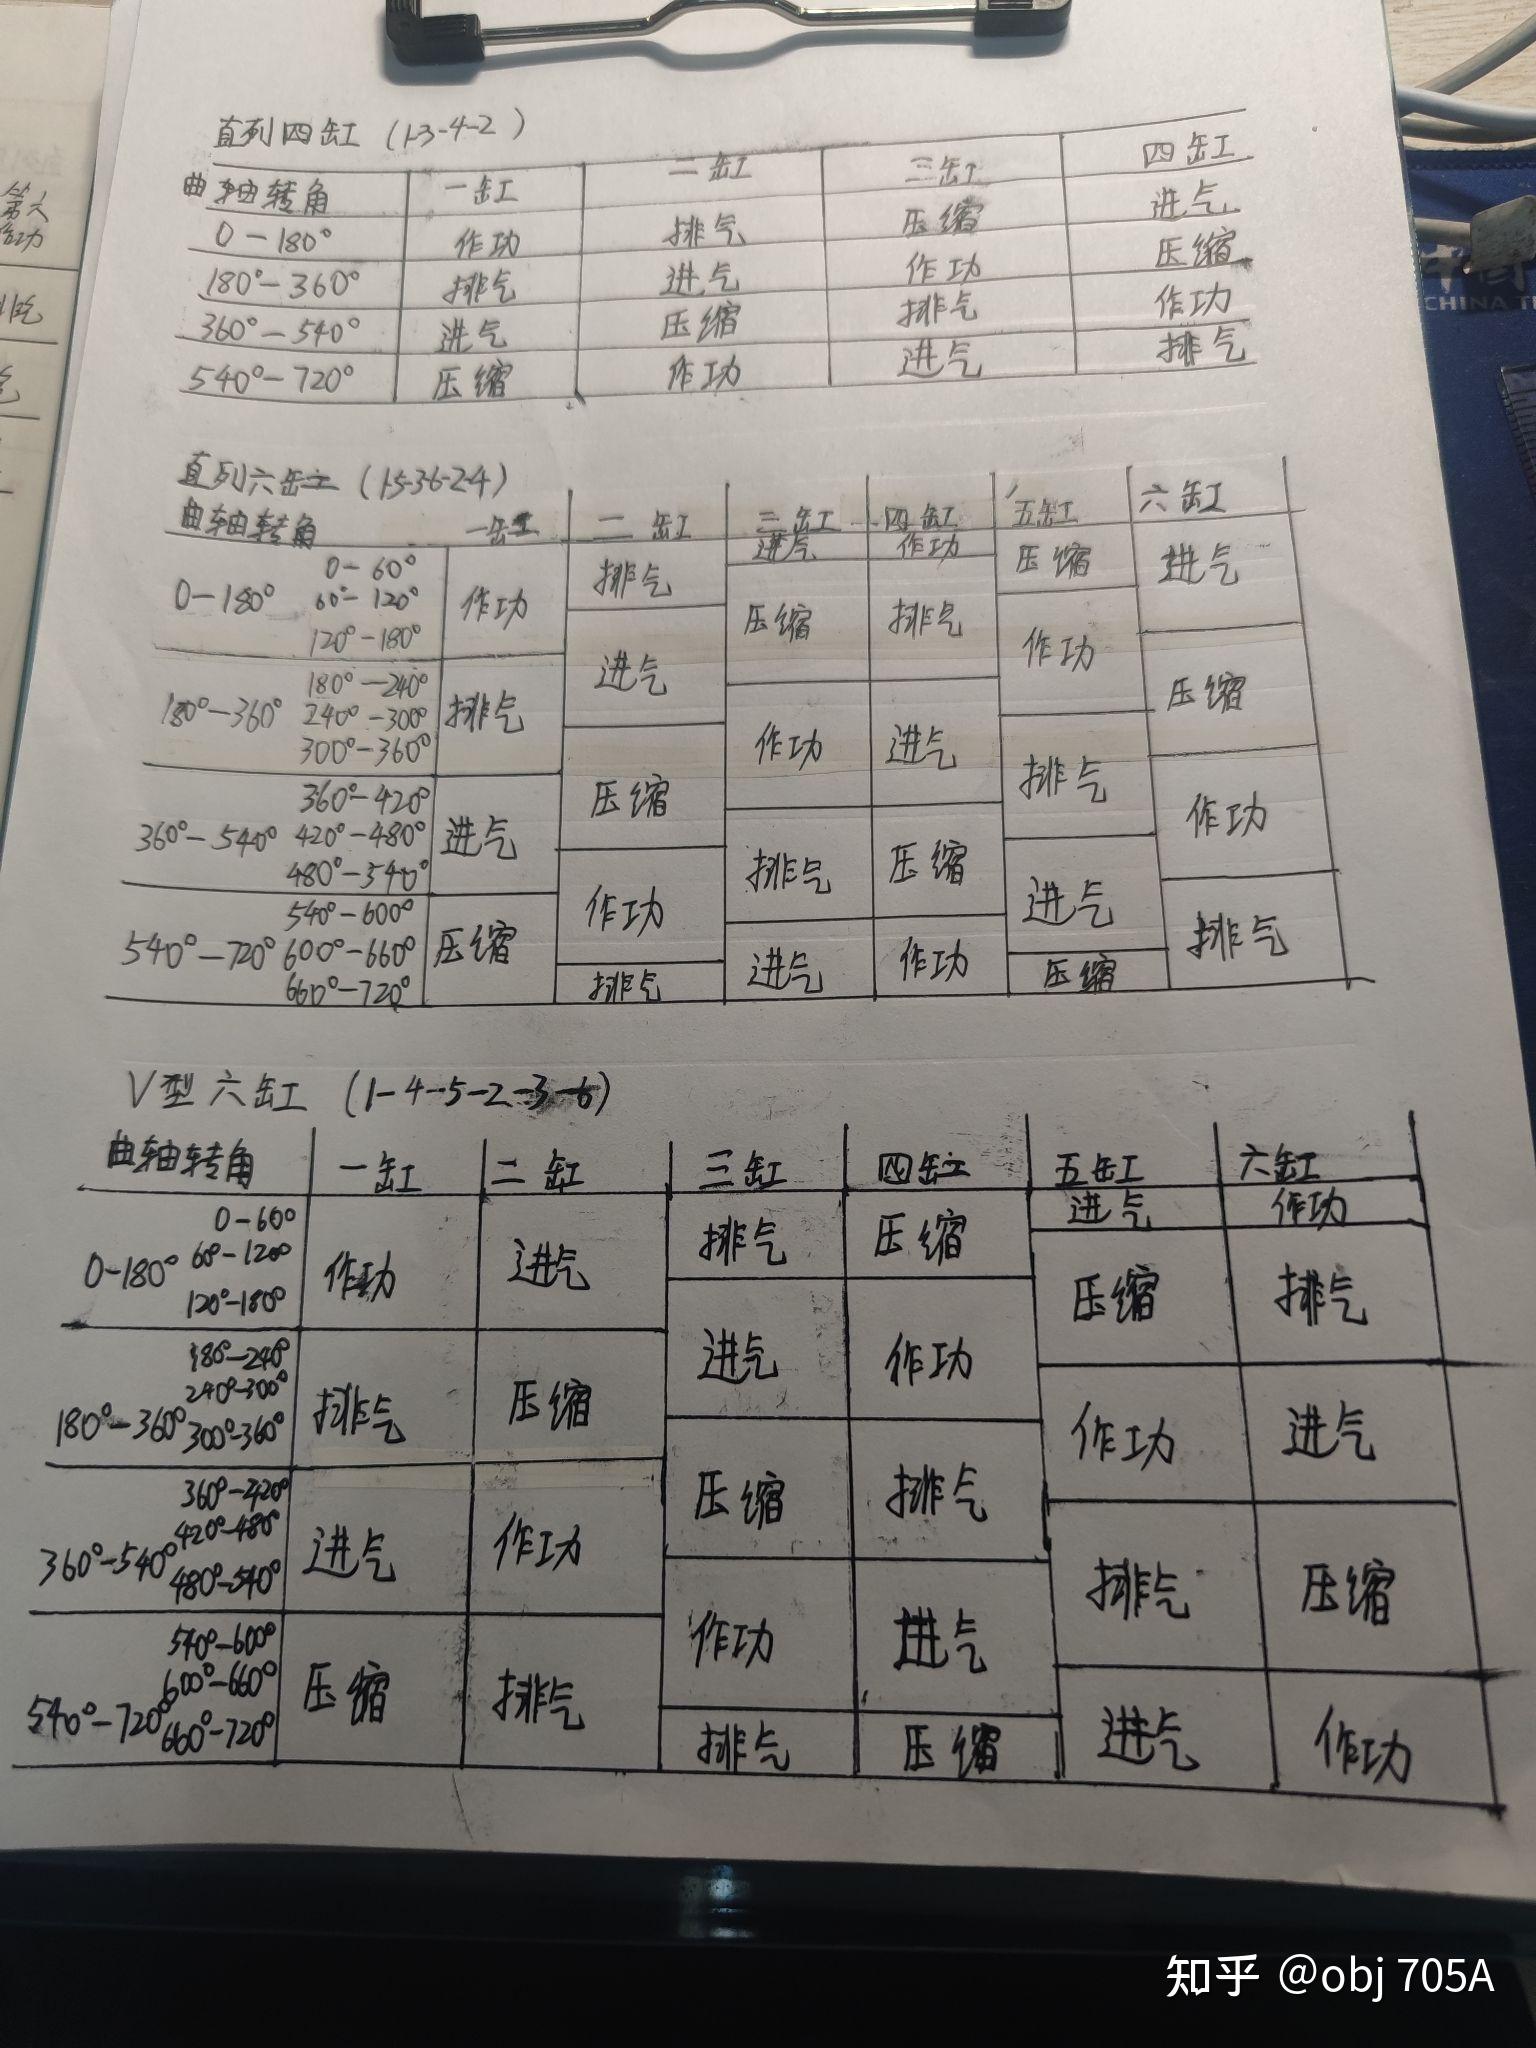 直列四缸 (1-3-4-2)
曲轴转角 一缸 二缸 三缸 四缸
0-180° 作功 排气 压缩 进气
180°-360° 排气 进气 作功 压缩
360°-540° 进气 压缩 排气 作功
540°-720° 压缩 作功 进气 排气
直列六缸 (1-5-3-6-2-4)
曲轴转角 一缸 二缸 三缸 四缸 五缸 六缸
0-60° 排气 进气 作功 压缩 进气
0-180° 60°-120° 作功 压缩 排气
120°-180° 进气 作功
180°-240° 压缩
180°-360° 240°-300° 排气 作功 进气
300°-360° 压缩 排气
360°-420° 作功
360°-540° 420°-480° 进气 排气 压缩
480°-540° 作功 进气
540°-600° 排气
540°-720° 600°-660° 压缩 进气 作功
660°-720° 排气 压缩
V型六缸 (1-4-5-2-3-6)
曲轴转角 一缸 二缸 三缸 四缸 五缸 六缸
0-60° 排气 压缩 进气 作功
0-180° 60°-120° 作功 进气 压缩 排气
120°-180° 进气 作功
180°-240°
180°-360° 240°-300° 排气 压缩 作功 进气
300°-360° 压缩 排气
360°-420°
360°-540° 420°-480° 进气 作功 排气 压缩
480°-540° 作功 进气
540°-600°
540°-720° 600°-660° 压缩 排气 进气 作功
660°-720° 排气 压缩
第六
作功
排气
中国
CHINA TE
知乎 @obj 705A